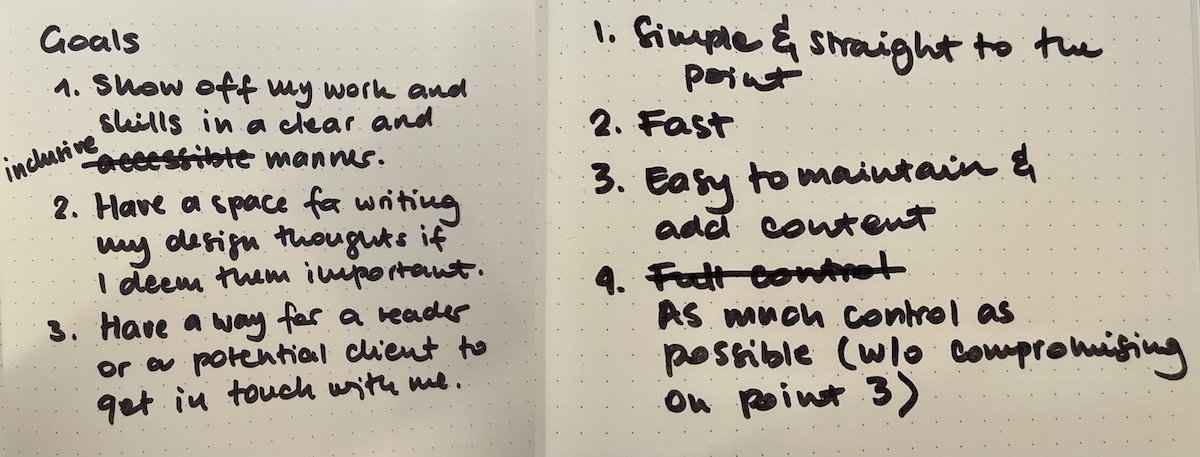 Goals
1. Show off my work and
skills in a clear and
inclusive accessible manner.
2. Have a space for writing
my design thoughts if
I deem them important.
3. Have a way for a reader
or a potential client to
get in touch with me.
1. Simple & straight to the
point
2. Fast
3. Easy to maintain &
add content
4. Full control
As much control as
possible (w/o compromising
on point 3)